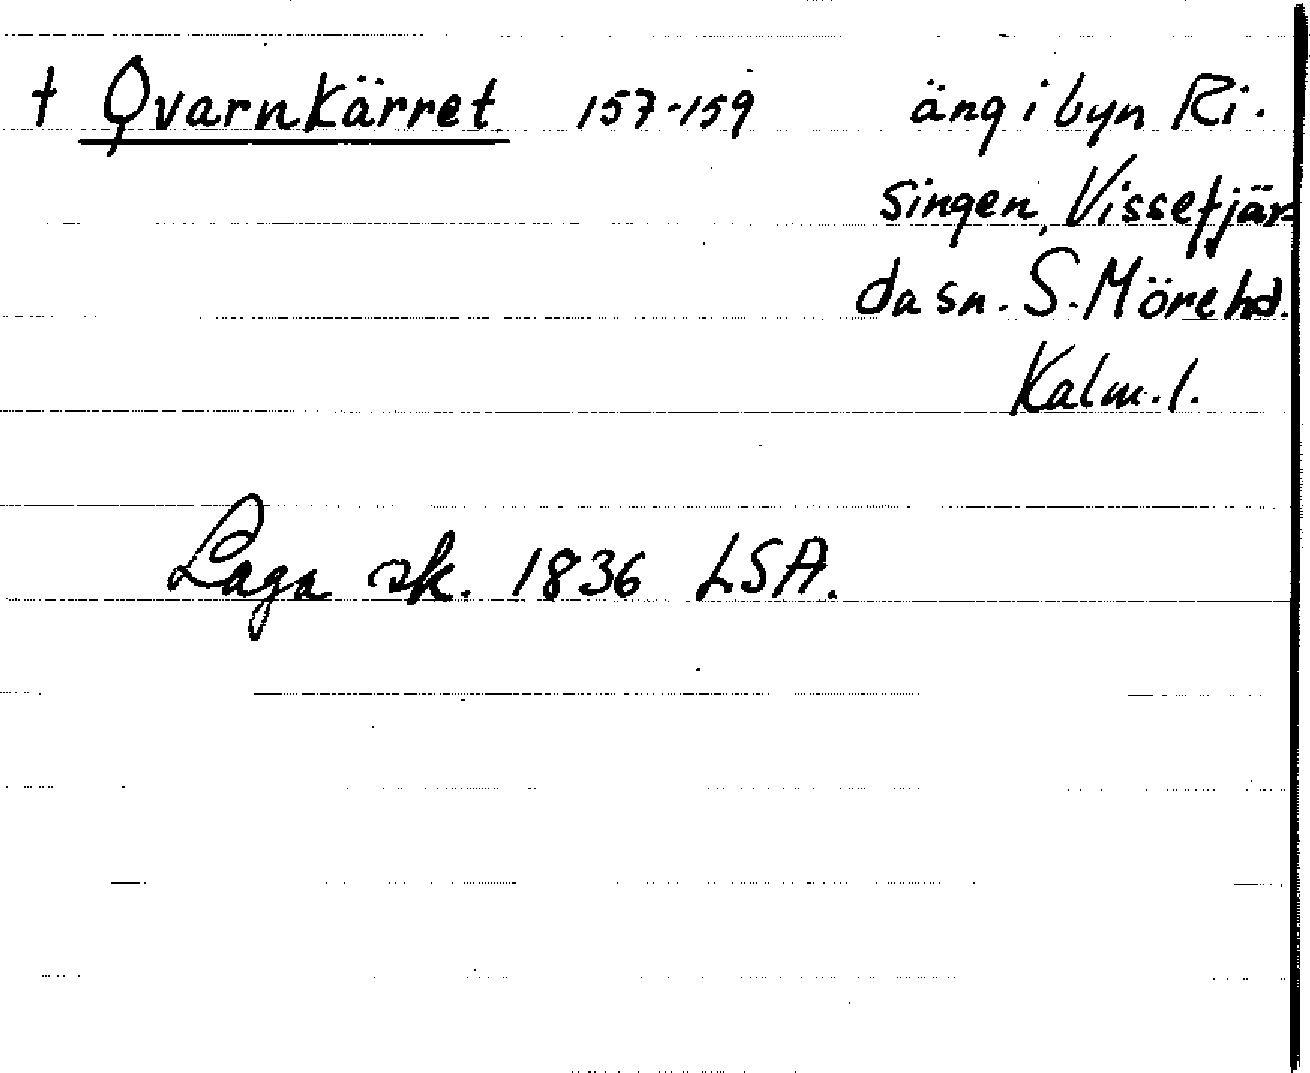 † Qvarnkärret 157-159 äng i byn Ri-
singen, Vissefjär-
da sn. S. Möre hd.
Kalm. l.
Laga sk. 1836 LSA.